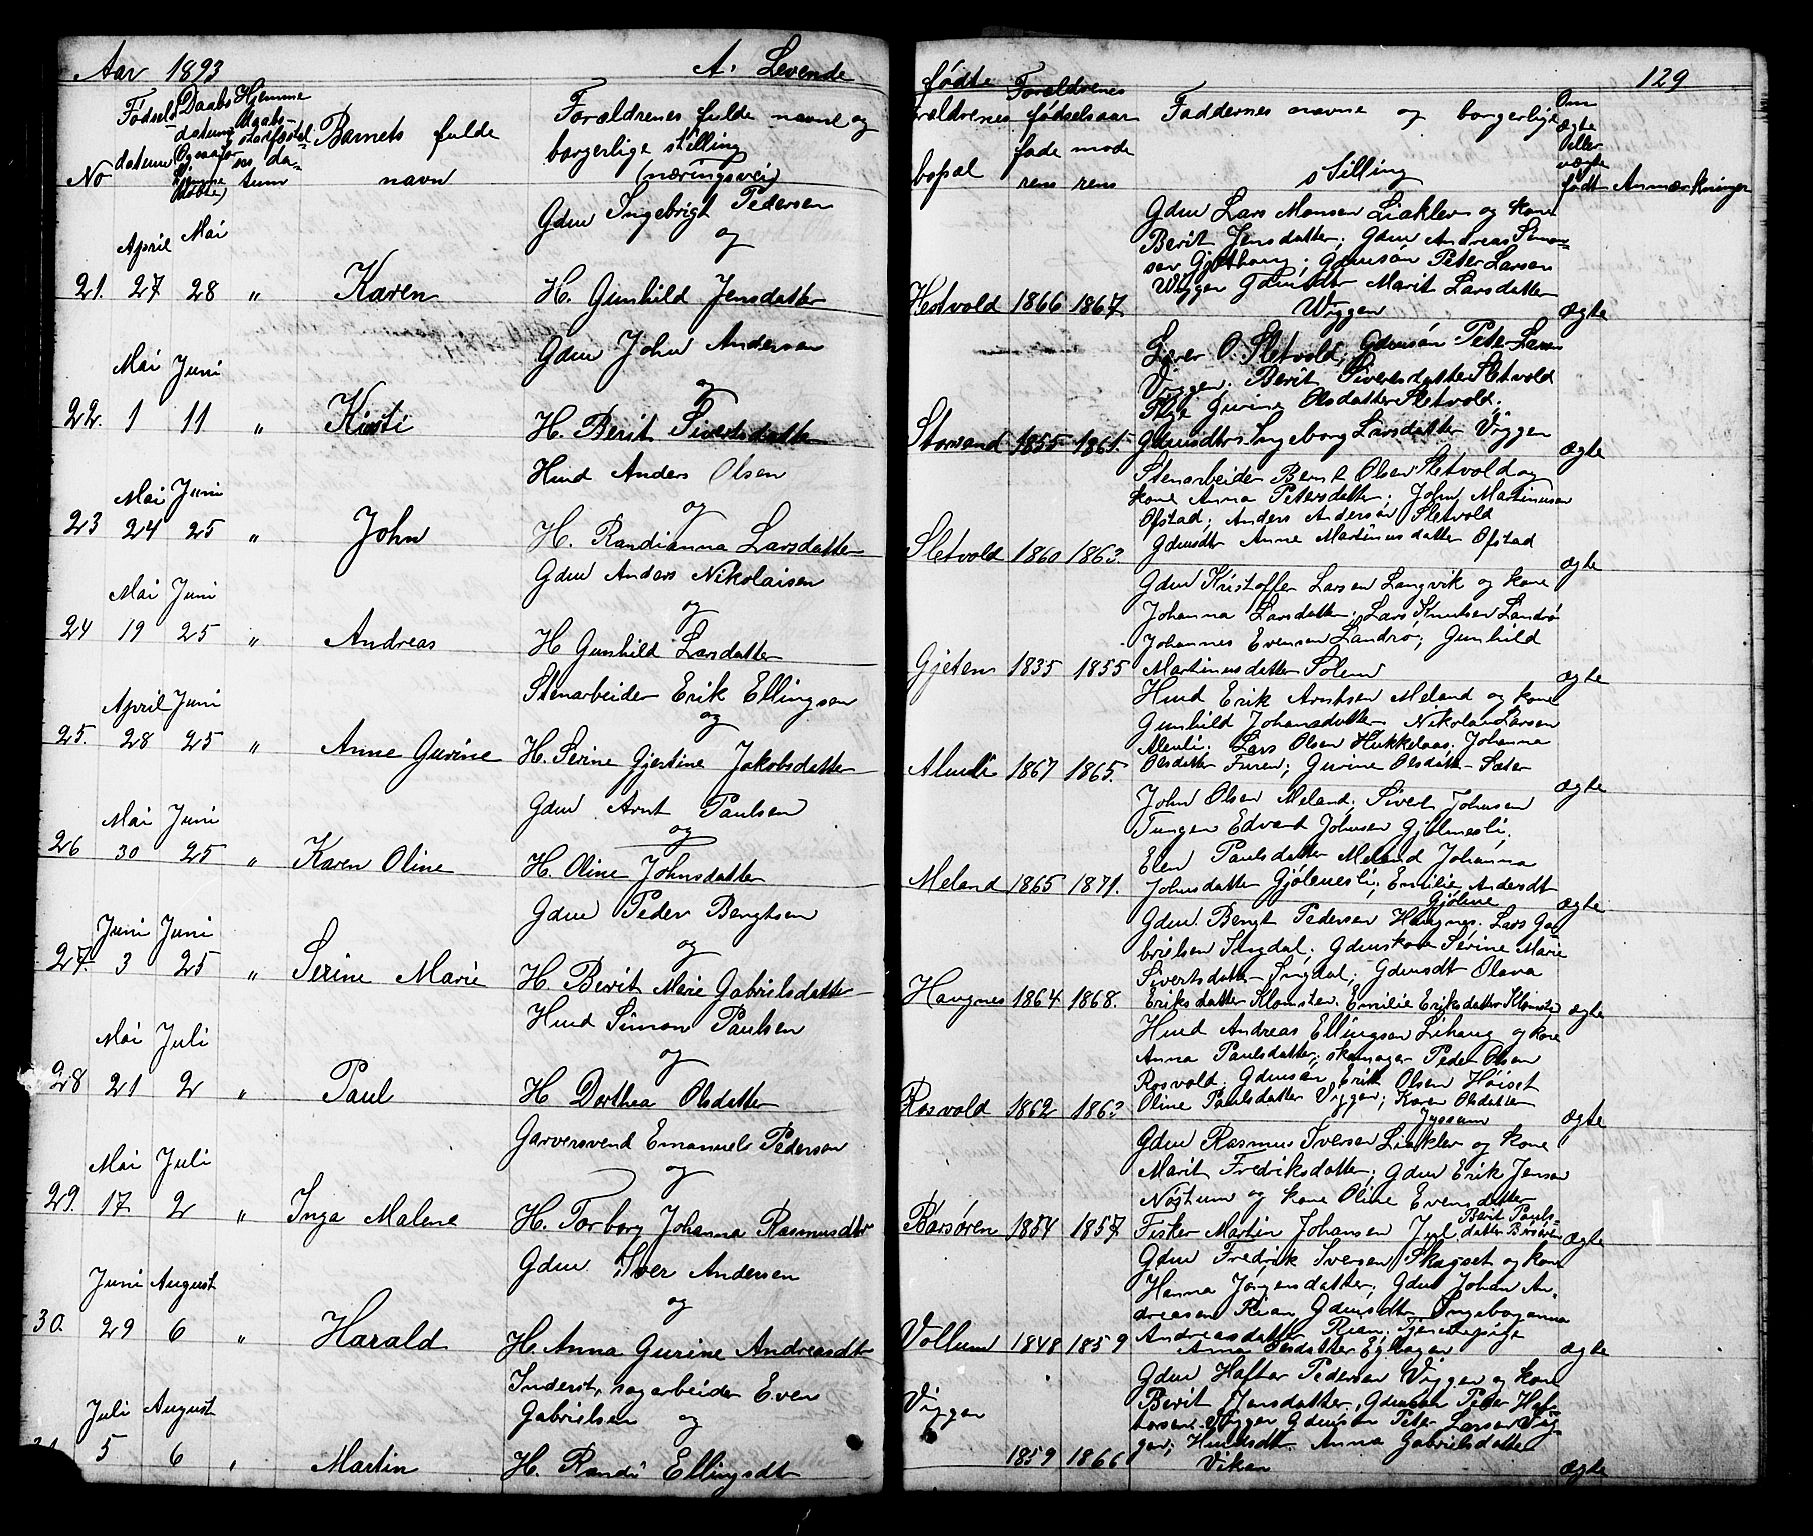 Aar 1893
A. Levende
No
Fødsels datum
Daabs datum Ogsaa for Hjemme døbte)
Hjemme daabs stadfæstelsens datum
Barnets fulde navn
Forældrenes fulde navne og borgerlige stilling (næringsvei)
21. April 27 Mai 28 " Karen
Gdm Ingebrigt Pedersen
og
H. Gunhild Jensdatter
22. Mai 1 Juni 11 " Kirsti
Gdm John Andersen
og
H. Berit Sivertsdatter
23 Mai 24 Juni 25 " John
Husd Anders Olsen
og
H. Randianna Larsdatter
24 Mai 19 Juni 25 " Andreas
Gdm Anders Nikolaisen
og
H Gunhild Larsdatter
25. April 28 Juni 25 " Anne Gurine
Stenarbeider Erik Ellingsen
og
H. Serine Gjertine Jakobsdatter
26 Mai 30 Juni 25 " Karen Oline
Gdm Arnt Paulsen
og
H. Oline Johnsdatter
27. Juni 3 Juni 25 " Serine Marie
Gdm Peder Bengtsen
og
H. Berit Marie Gabrielsdatter
28 Mai 21 Juli 2 " Paul
Husd Simon Paulsen
og
H Dorthea Olsdatter
29. Mai 17 Juli 2 " Inga Malene
Garversvend Emanuel Pedersen
og
H. Torborg Johanna Rasmusdtr
30. Juni 29 August 6 " Harald
Gdm Iver Andersen
og
H. Anna Gurine Andreasdt
Juli 5 August 6 " Martin
Inderst, sagarbeider Even
Gabrielsen og
H. Randi Ellingsdt
fødte
129
Forældrenes bopæl
Forældrenes fødselsaar
faderens moderens
Faddernes navne og borgerlige stilling
Om ægte eller uægte født
Anmærkninger
Hestvold 1866 1867
Gdm Lars Monsen Liaklev og kone
Berit Jensdatter; Gdm Andreas Simonsen
Gjethaug; Gdmsøn Peter Larsen
Wiggen Gdmdtr Marit Larsdatter
Wiggen
ægte
Storsand 1855 1861.
Lærer O. Sletvold, Gdmsøn Peter Larsen
Viggen. Berit Sivertsdatter Sletvold
Pige Gurine Olsdatter Sletvold.
Gdmsdtr Ingeborg Larsdatter Viggen
ægte
Sletvold 1860 1863.
Stenarbeider Bernt Olsen Sletvold og
kone Anna Petersdatter; John Martinusen
Ofstad; Anders Andersen Sletvold
Gdmsdt Anne Martinusdatter Ofstad
ægte
Gjeten 1835 1855
Gdm Kristoffer Larsen Langvik og kone
Johanna Larsdatter; Lars Knutsen Landrø
Johannes Evensen Landrø; Gunhild
Martinusdatter Solem
ægte
Almli 1867 1865.
Husd Erik Arntsen Meland og kone
Gunhild Johansdatter Nikolai Larsen
Almli. Lars Olsen Hukkelaas; Johanna
Olsdatter Furen; Gurine Olsdatt Sæter
ægte
Meland 1865 1871.
John Olsen Meland. Sivert Johnsen
Tungen Edvard Johnsen Gjølmesli,
Elen Paulsdatter Meland Johanna
Johnsdatter Gjølmesli; Emilie Andersdt
Gjølme
ægte
Haugnes 1864 1868.
Gdm. Bengt Pedersen Haugnes. Lars Gabrielsen
Ingdal; Gdmskone Serine Marie
Sivertsdatter Ingdal; Gdmsdt Olava
Eriksdatter Klomsten. Emilie Eriksdatter Klomsten
ægte
Rosvold 1862 1863
Husd Andreas Ellingsen Lihaug og kone
Anna Paulsdatter; skomager Peder Olsen
Rosvold; Gdmsøn Erik Olsen Høiset
Oline Paulsdatter Viggen; Karen Olsdatter
Jyssum
ægte
Børsøren 1854 1857
Gdm Rasmus Iversen Liaklev og kone
Marit Fredriksdatter; Gdm Erik Jensen
Nostum og kone Oline Evensdatter
Fisker Martin Johansen Jul Berit Paulsdatter Børsøren
ægte
Vollum 1848 1859
Gdm Fredrik Iversen Skagset og kone
Hanna Jørgensdatter; Gdm Johan Andreasen
Rian Gdmsdt Ingeboranna
Andreasdatter Rian; Tjenestepige
Anna Olsdatter Eghagen
ægte
Viggen 1859 1866
Gdm Haftor Pedersen Viggen og kone
Berit Jensdatter. Gdmsøn Peter Haftorsen
Viggen Gdmsøn Peter Larsen Viggen;
Husdsdt Anna Gabrielsdatter
Vikan
ægte